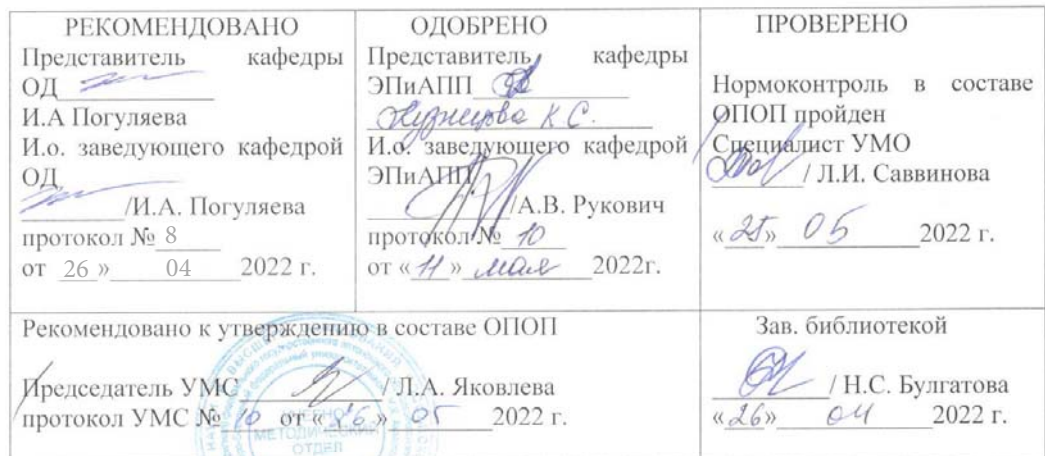 РЕКОМЕНДОВАНО
Представитель кафедры
ОД
И.А Погуляева
И.о. заведующего кафедрой
ОД
/И.А. Погуляева
протокол № 8
от 26 » 04 2022 г.
ОДОБРЕНО
Представитель кафедры
ЭПиАПП
Кузнецова К.С.
И.о. заведующего кафедрой
ЭПиАПП
/А.В. Рукович
протокол № 10
от « 11 » мая 2022г.
ПРОВЕРЕНО
Нормоконтроль в составе
ОПОП пройден
Специалист УМО
/ Л.И. Саввинова
« 25 » 05 2022 г.
Рекомендовано к утверждению в составе ОПОП
Председатель УМС / Л.А. Яковлева
протокол УМС № 10 от « 26 » 05 2022 г.
УЧЕБНО
МЕТОДИЧЕСКИЙ
ОТДЕЛ
Зав. библиотекой
/ Н.С. Булгатова
«26» 04 2022 г.